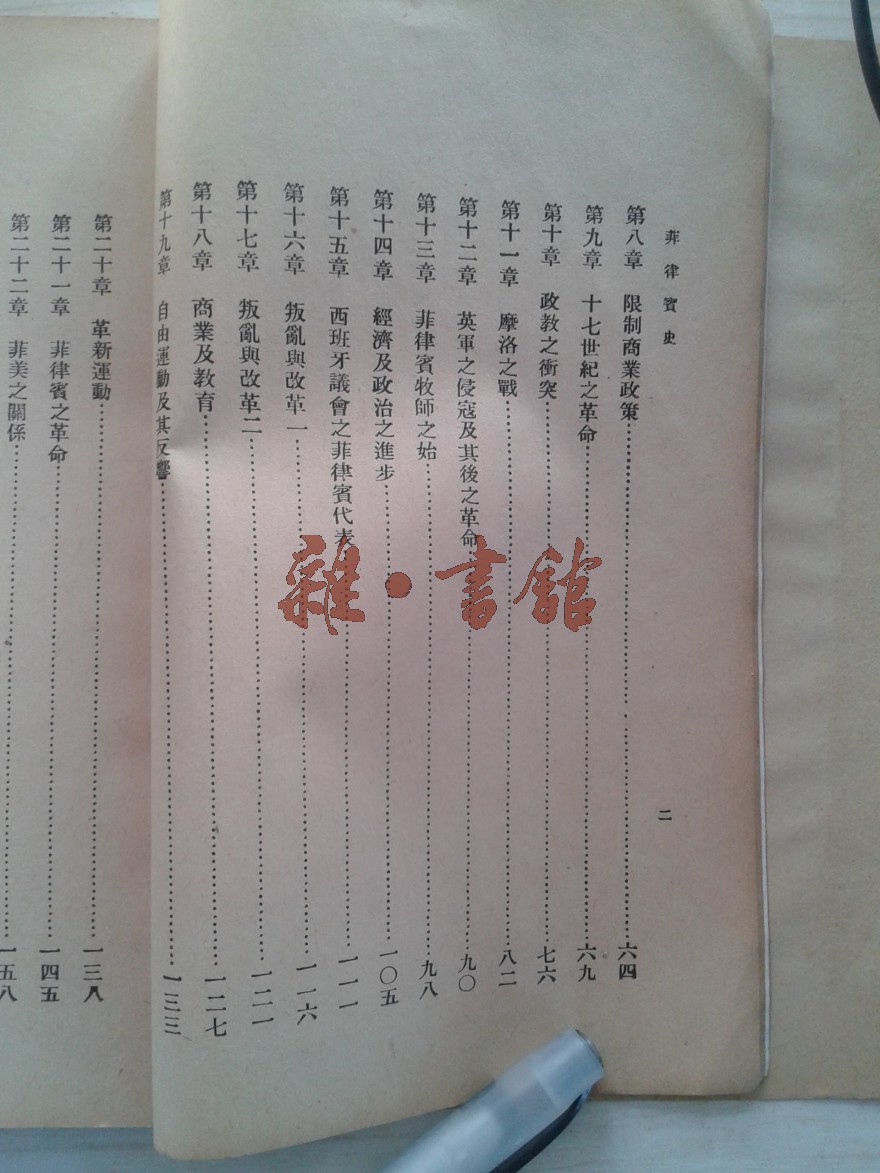 菲律賓史
二
第八章 限制商業政策……六四
第九章 十七世紀之革命……六九
第十章 政教之衝突……七六
第十一章 摩洛之戰……八二
第十二章 英軍之侵寇及其後之革命……九〇
第十三章 菲律賓牧師之始……九八
第十四章 經濟及政治之進步……一〇五
第十五章 西班牙議會之菲律賓代表……一一一
第十六章 叛亂與改革一……一一六
第十七章 叛亂與改革二……一二一
第十八章 商業及教育……一二七
第十九章 自由運動及其反響……一三三
第二十章 革新運動……一三八
第二十一章 菲律賓之革命……一四五
第二十二章 菲美之關係……一五八
雜·書館